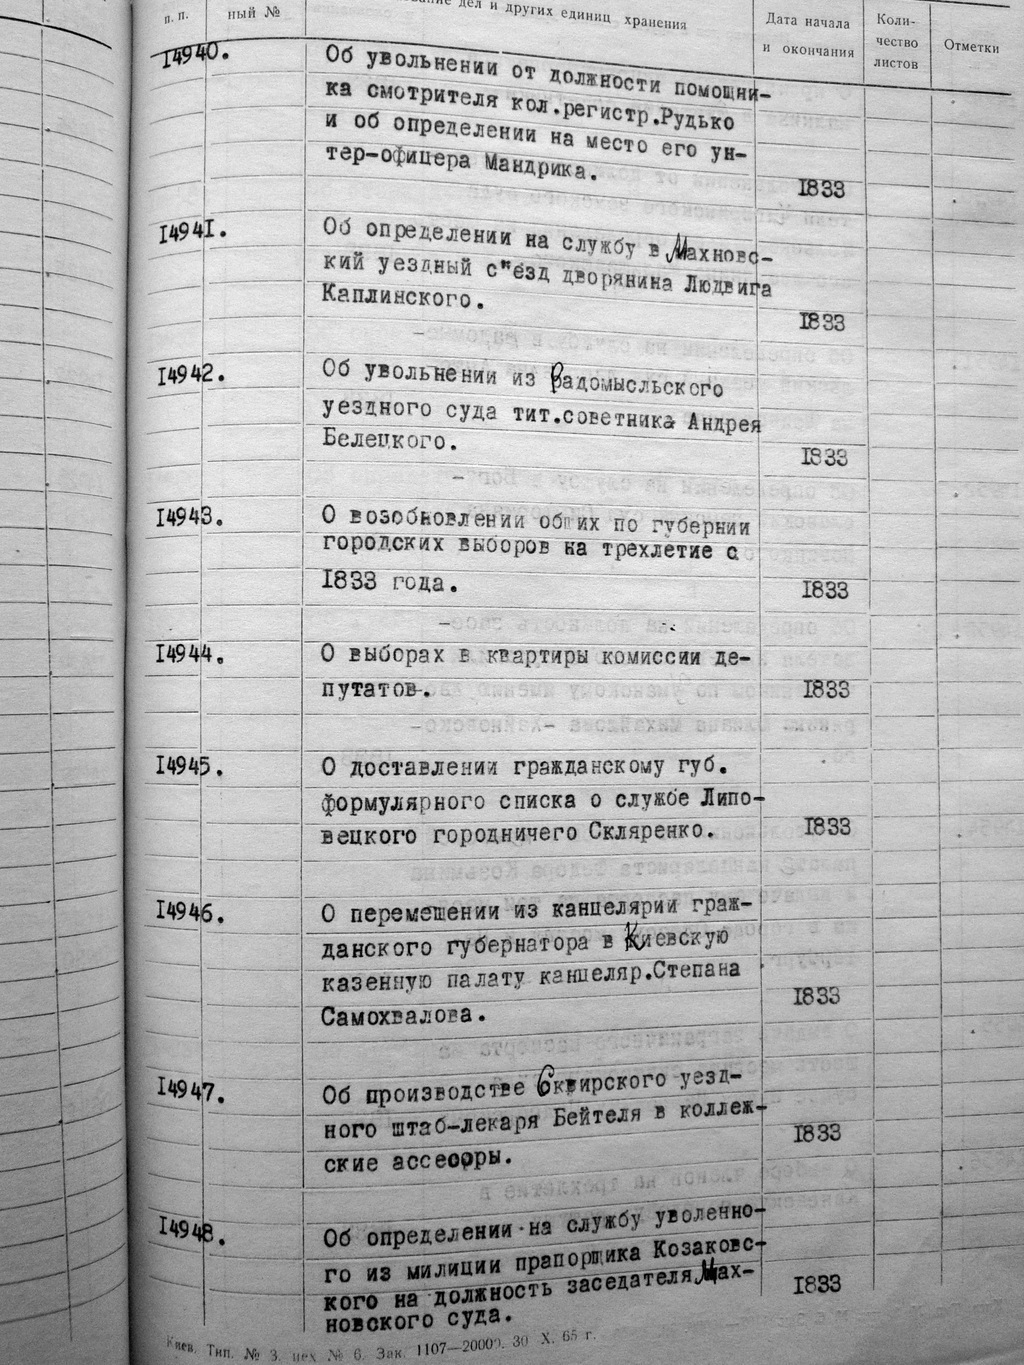 п. п.
ный №
дел и других единиц хранения
Дата начала
и окончания
Коли-
чество
листов
Отметки
14940.
Об увольнении от должности помощни-
ка смотрителя кол.регистр.Рудько
и об определении на место его ун-
тер-офицера Мандрика.
1833
14941.
Об определении на службу в Махновс-
кий уездный с"езд дворянина Людвига
Каплинского.
1833
14942.
Об увольнении из Радомысльского
уездного суда тит.советника Андрея
Белецкого.
1833
14943.
О возобновлении общих по губернии
городских выборов на трехлетие с
1833 года.
1833
14944.
О выборах в квартиры комиссии де-
путатов.
1833
14945.
О доставлении гражданскому губ.
формулярного списка о службе Липо-
вецкого городничего Скляренко.
1833
14946.
О перемещении из канцелярии граж-
данского губернатора в Киевскую
казенную палату канцеляр.Степана
Самохвалова.
1833
14947.
Об производстве Сквирского уезд-
ного штаб-лекаря Бейтеля в коллеж-
ские ассесоры.
1833
14948.
Об определении на службу уволенно-
го из милиции прапорщика Козаковс-
кого на должность заседателя Мах-
новского суда.
1833
Киев. Тип. № 3, цех № 6. Зак. 1107—20000. 30 X. 65 г.